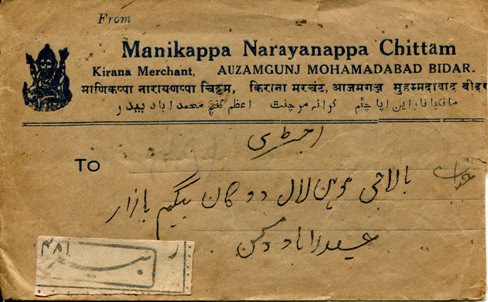 From
Manikappa Narayanappa Chittam
Kirana Merchant, AUZAMGUNJ MOHAMADABAD BIDAR.
माणिकप्पा नारायणप्पा चिट्टम, किराना मरचंट, आजमगञ्ज मुहम्मदाबाद बीदर
مانکپا نارائن اپا چٹم کرانہ مرچنٹ اعظم گنج محمد آباد بیدر
رجسٹری
TO
بالاجی موہن لال دوکان بیگم بازار
حیدرآباد دکن
بیدر